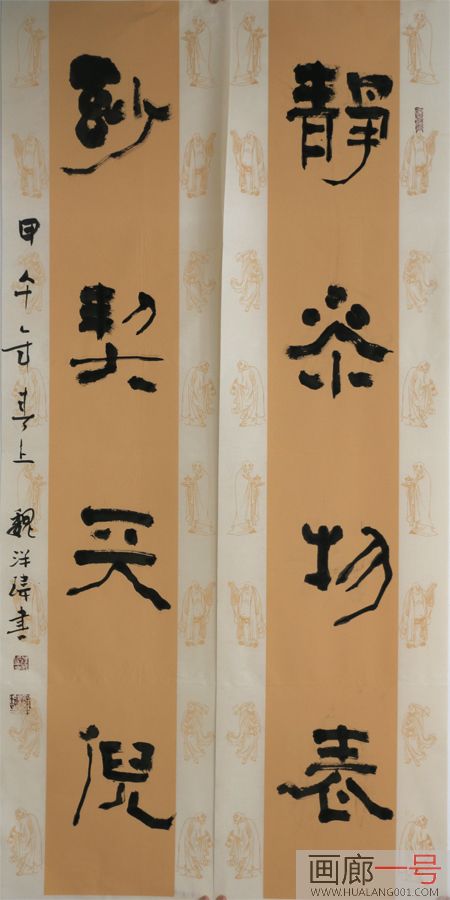 靜參物表
妙契天倪
甲午年春上 魏洋書
画廊一号
WWW.HUALANG001.COM